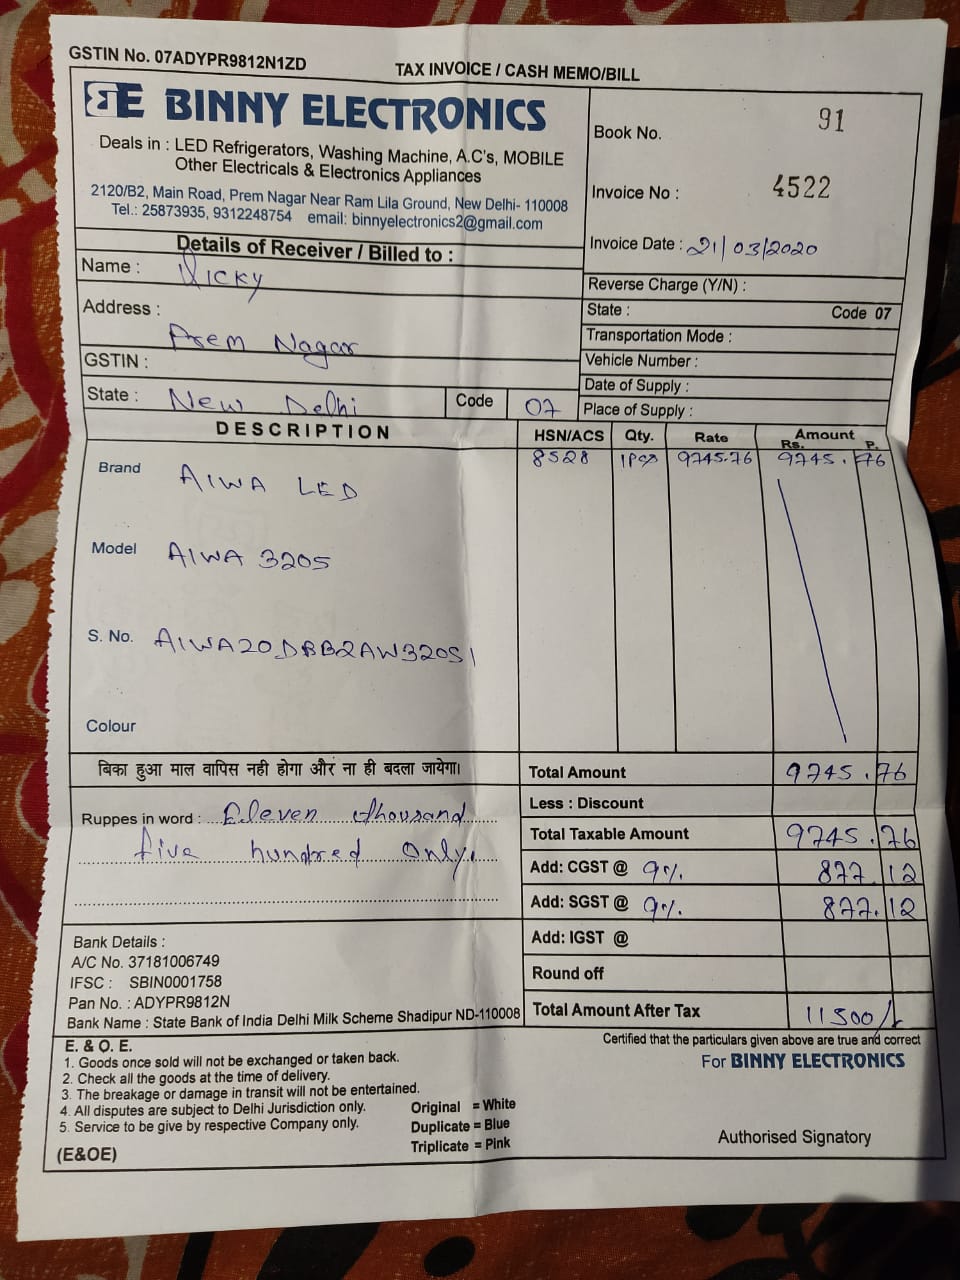 GSTIN No. 07ADYPR9812N1ZD
TAX INVOICE / CASH MEMO/BILL
BE BINNY ELECTRONICS
Deals in : LED Refrigerators, Washing Machine, A.C's, MOBILE
Other Electricals & Electronics Appliances
2120/B2, Main Road, Prem Nagar Near Ram Lila Ground, New Delhi- 110008
Tel.: 25873935, 9312248754 email: binnyelectronics2@gmail.com
Book No. 91
Invoice No : 4522
Invoice Date : 21/03/2020
Details of Receiver / Billed to :
Name : Vicky
Address : Prem Nagar
GSTIN :
State : New Delhi Code 07
Reverse Charge (Y/N) :
State : Code 07
Transportation Mode :
Vehicle Number :
Date of Supply :
Place of Supply :
DESCRIPTION HSN/ACS Qty. Rate Amount
Rs. P.
8528 1pcs 9745.76 9745.76
Brand AIWA LED
Model AIWA 320S
S. No. AIWA20DBB2AW320S1
Colour
बिका हुआ माल वापिस नही होगा और ना ही बदला जायेगा।
Total Amount 9745.76
Ruppes in word : Eleven thousand
five hundred only.
Less : Discount
Total Taxable Amount 9745.76
Add: CGST @ 9% 877.12
Add: SGST @ 9% 877.12
Add: IGST @
Round off
Total Amount After Tax 11500/-
Bank Details :
A/C No. 37181006749
IFSC : SBIN0001758
Pan No. : ADYPR9812N
Bank Name : State Bank of India Delhi Milk Scheme Shadipur ND-110008
E. & O. E.
1. Goods once sold will not be exchanged or taken back.
2. Check all the goods at the time of delivery.
3. The breakage or damage in transit will not be entertained.
4. All disputes are subject to Delhi Jurisdiction only.
5. Service to be give by respective Company only.
(E&OE)
Original = White
Duplicate = Blue
Triplicate = Pink
Certified that the particulars given above are true and correct
For BINNY ELECTRONICS
Authorised Signatory